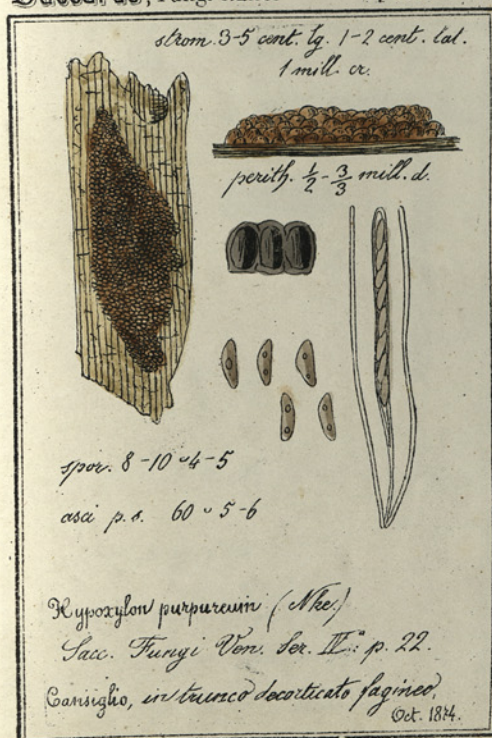 strom. 3-5 cent. lg. 1-2 cent. lat.
1 mill. cr.
perith. ½ - 3/3 mill. d.
spor. 8-10 ᴗ 4-5
asci p. s. 60 ᴗ 5-6
Hypoxylon purpureum (Nke.)
Sacc. Fungi Ven. Ser. IV.: p. 22.
Cansiglio, in trunco decorticato fagineo,
Oct. 1874.